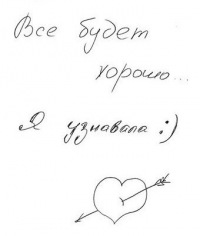 Все будет
хорошо...
Я узнавала :)